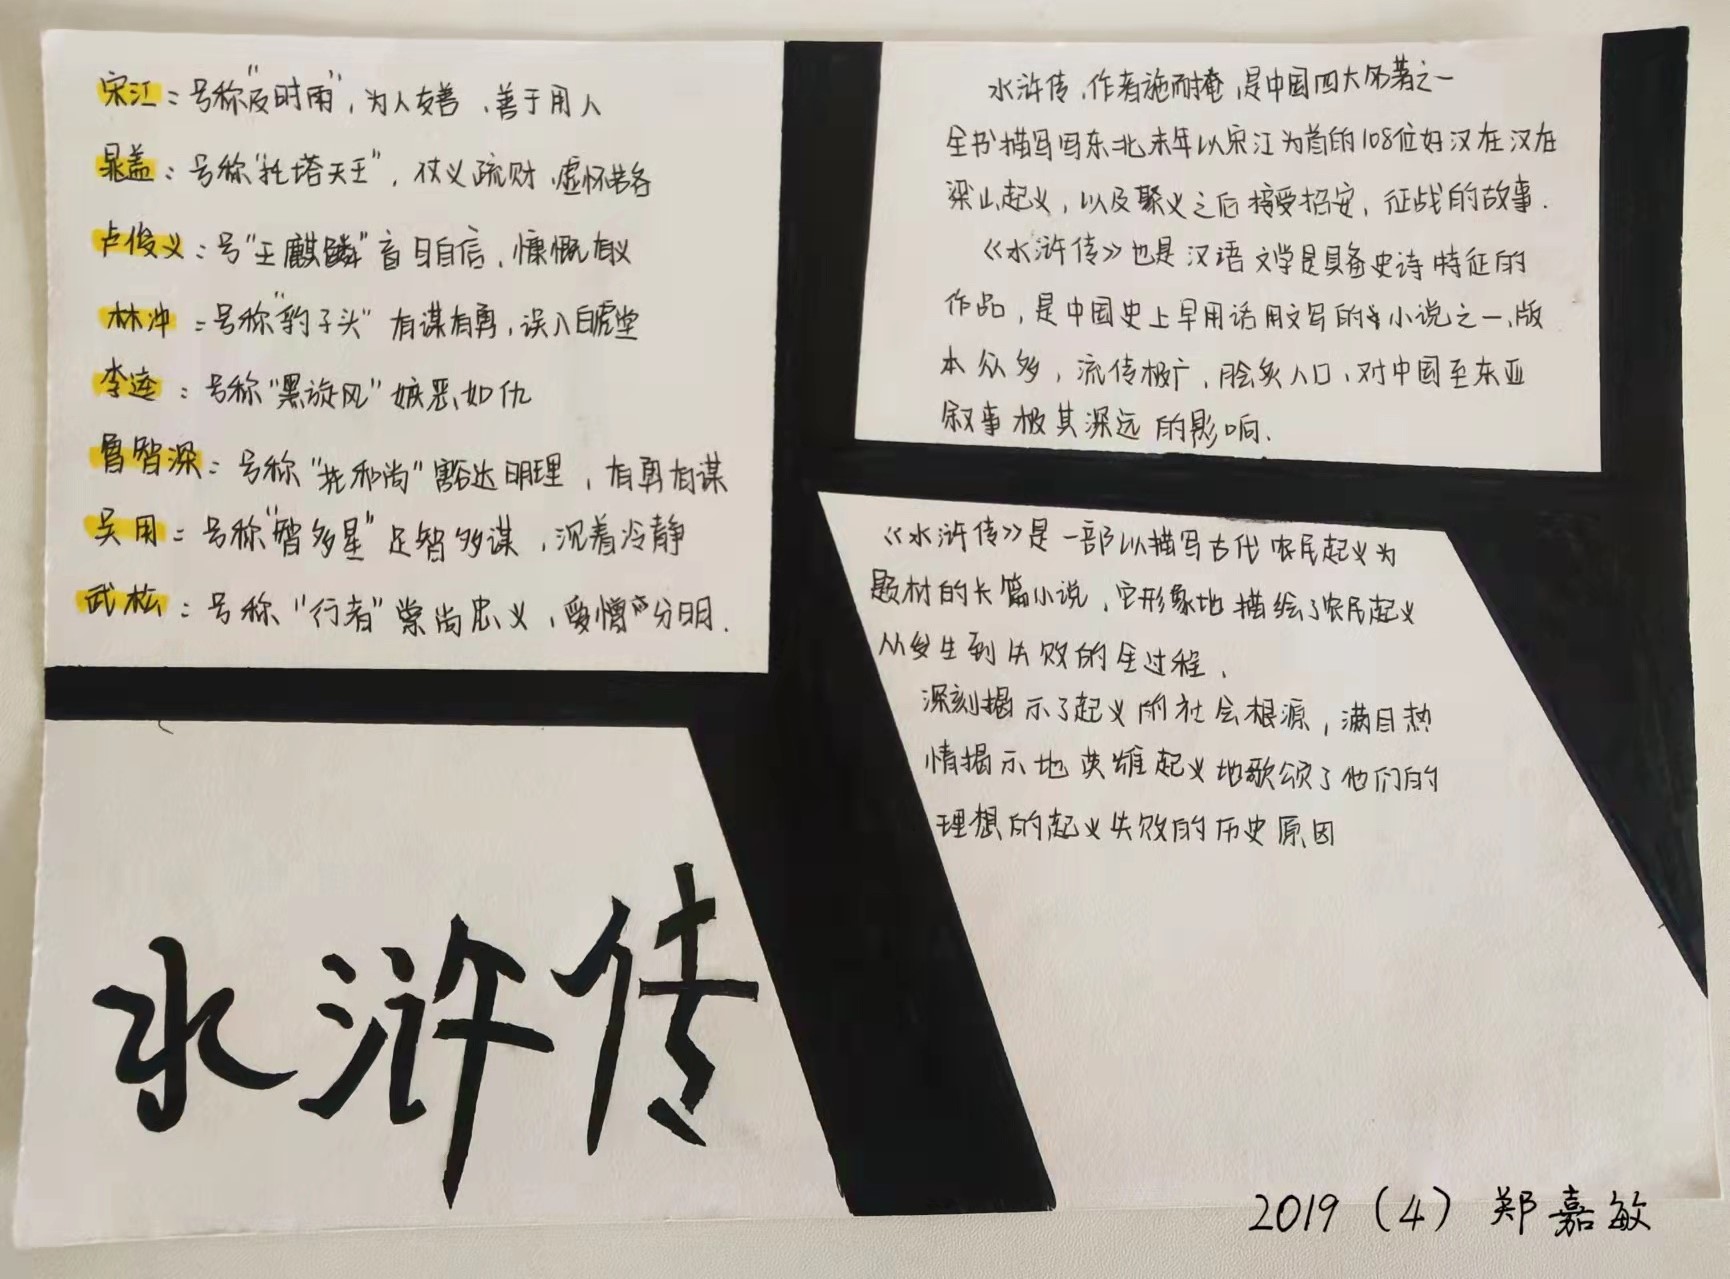 宋江：号称“及时雨”，为人友善、善于用人
晁盖：号称“托塔天王”，仗义疏财、虚怀若谷
卢俊义：号“玉麒麟”盲目自信，慷慨有义
林冲：号称“豹子头”有谋有勇，误入白虎堂
李逵：号称“黑旋风”嫉恶如仇
鲁智深：号称“花和尚”豁达明理，有勇有谋
吴用：号称“智多星”足智多谋，沉着冷静
武松：号称“行者”崇尚忠义，爱憎分明.
水浒传,作者施耐庵,是中国四大名著之一
全书描写写东北末年以宋江为首的108位好汉在汉在
梁山起义，以及聚义之后接受招安，征战的故事.
《水浒传》也是汉语文学是具备史诗特征的
作品，是中国史上早用话用文写的小说之一、版
本众多，流传极广，脍炙人口、对中国至东亚
叙事极其深远的影响.
《水浒传》是一部以描写古代农民起义为
题材的长篇小说，它形象地描绘了农民起义
从发生到失败的全过程.
深刻揭示了起义的社会根源，满目热
情揭示地英雄起义地歌颂了他们的
理想的起义失败的历史原因
水浒传
2019（4）郑嘉敏